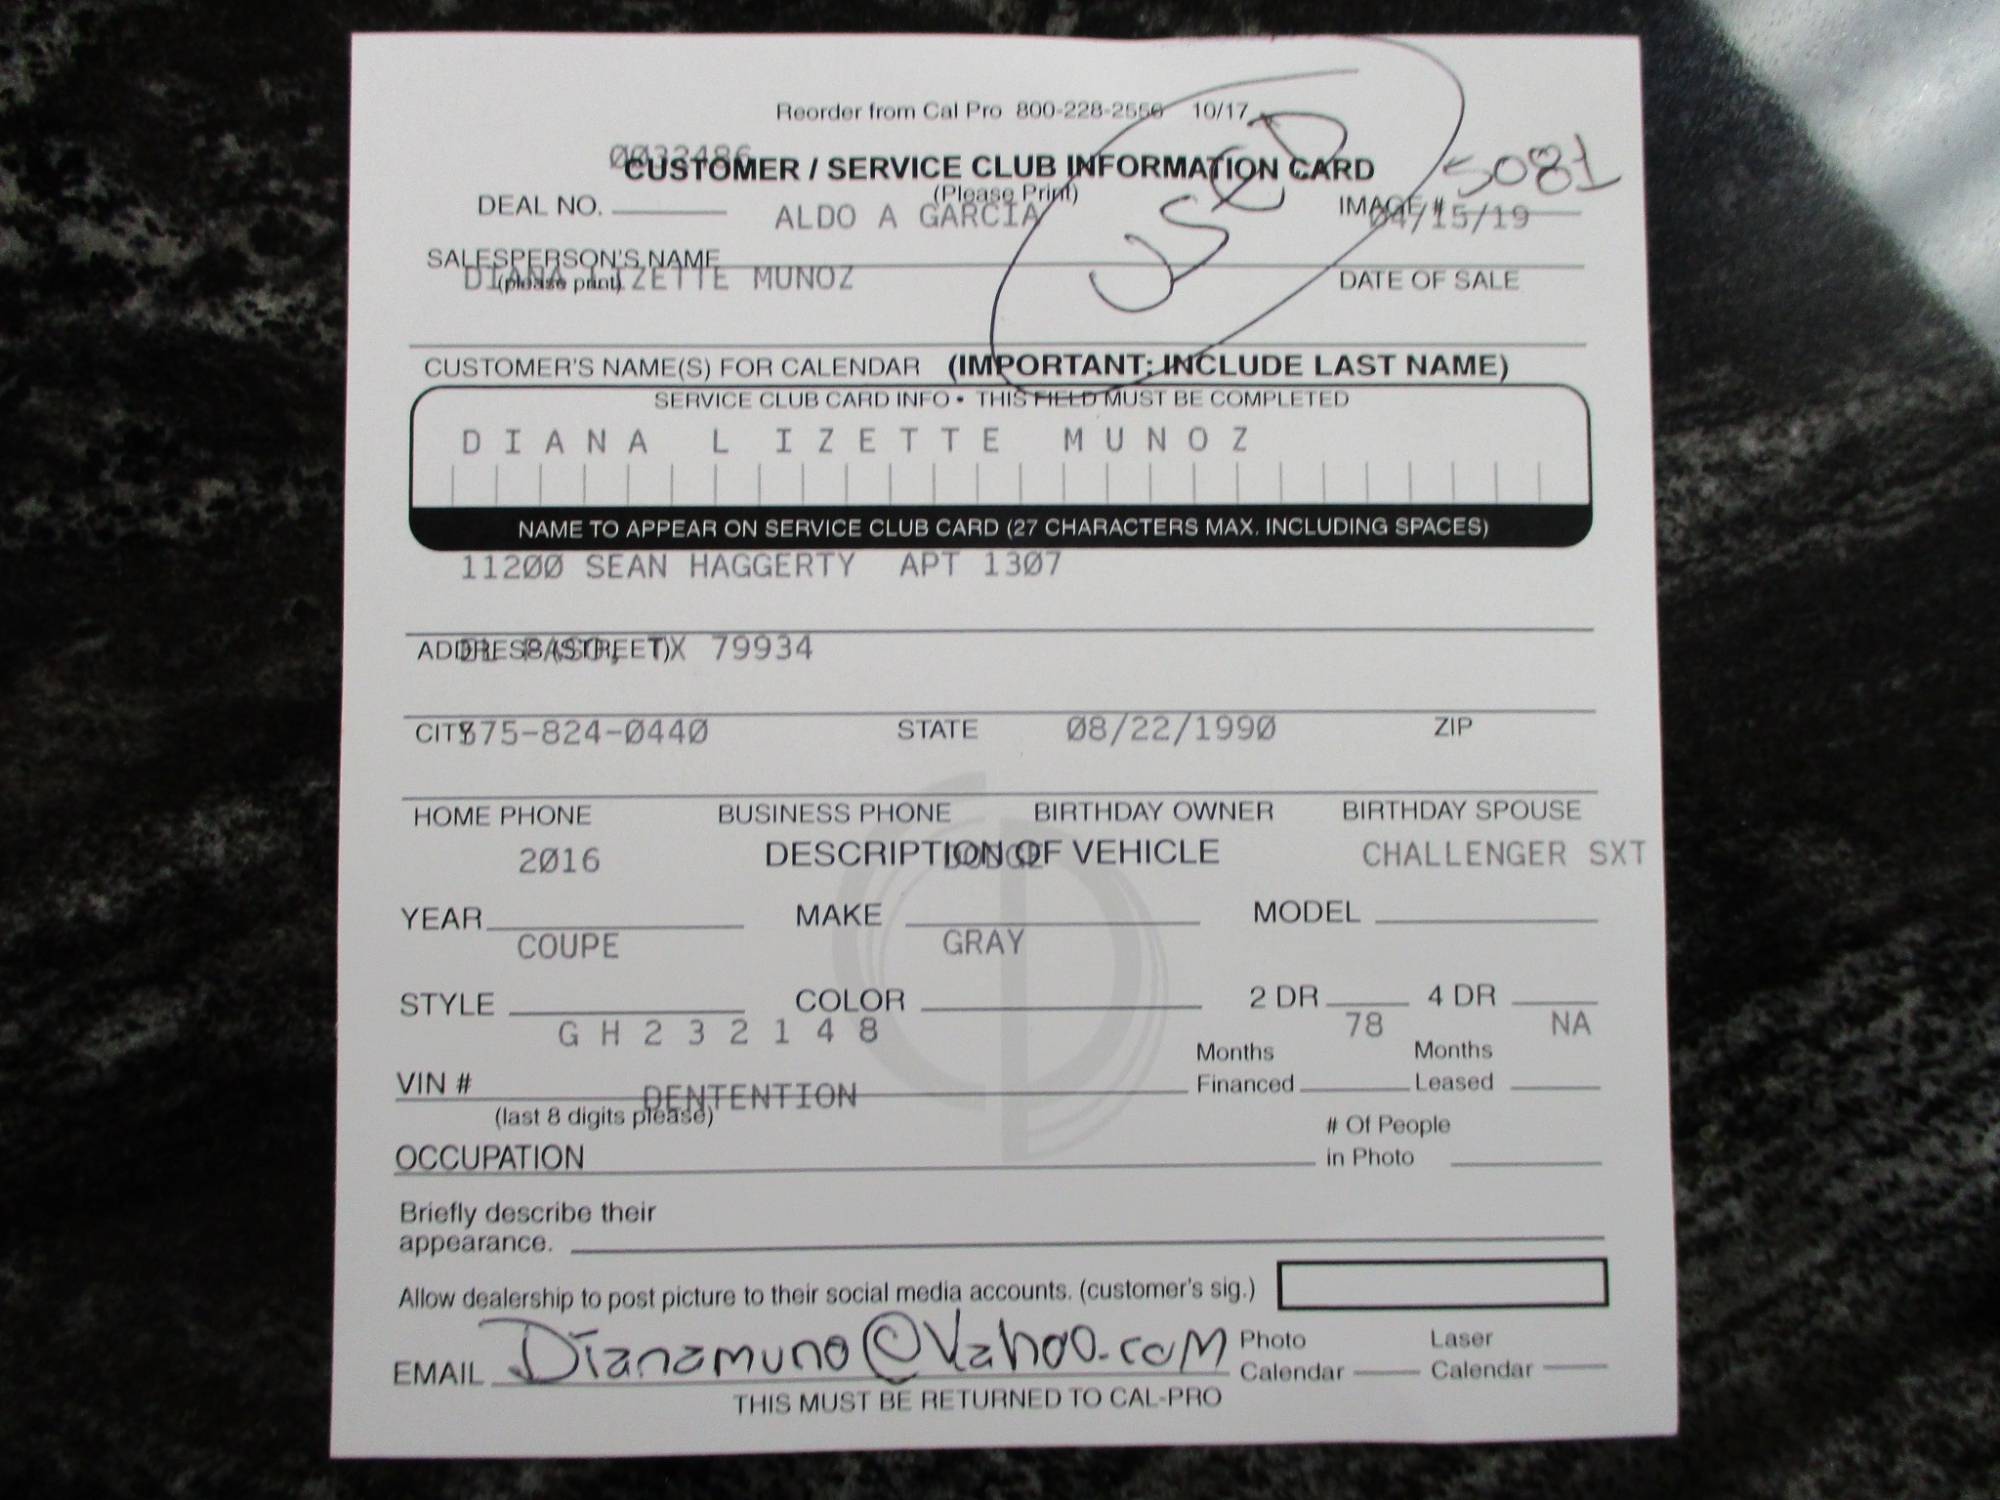 Reorder from Cal Pro 800-228-2556 10/17
0033486
CUSTOMER / SERVICE CLUB INFORMATION CARD
(Please Print)
5081
DEAL NO. ALDO A GARCIA IMAGE # 04/15/19
USED
SALESPERSON'S NAME
(please print) DIANA LIZETTE MUNOZ DATE OF SALE
CUSTOMER'S NAME(S) FOR CALENDAR (IMPORTANT: INCLUDE LAST NAME)
SERVICE CLUB CARD INFO • THIS FIELD MUST BE COMPLETED
DIANA L IZETTE MUNOZ
NAME TO APPEAR ON SERVICE CLUB CARD (27 CHARACTERS MAX. INCLUDING SPACES)
11200 SEAN HAGGERTY APT 1307
ADDRESS (STREET) EL PASO, TX 79934
CITY 575-824-0440 STATE 08/22/1990 ZIP
HOME PHONE BUSINESS PHONE BIRTHDAY OWNER BIRTHDAY SPOUSE
DESCRIPTION OF VEHICLE
2016 DODGE CHALLENGER SXT
YEAR MAKE MODEL
COUPE GRAY
STYLE COLOR 2 DR 4 DR
GH232148 78 NA
VIN # Months Financed Months Leased
(last 8 digits please) DENTENTION
OCCUPATION # Of People in Photo
Briefly describe their
appearance.
Allow dealership to post picture to their social media accounts. (customer's sig.)
EMAIL Dianamuno@Yahoo.com Photo Calendar Laser Calendar
THIS MUST BE RETURNED TO CAL-PRO